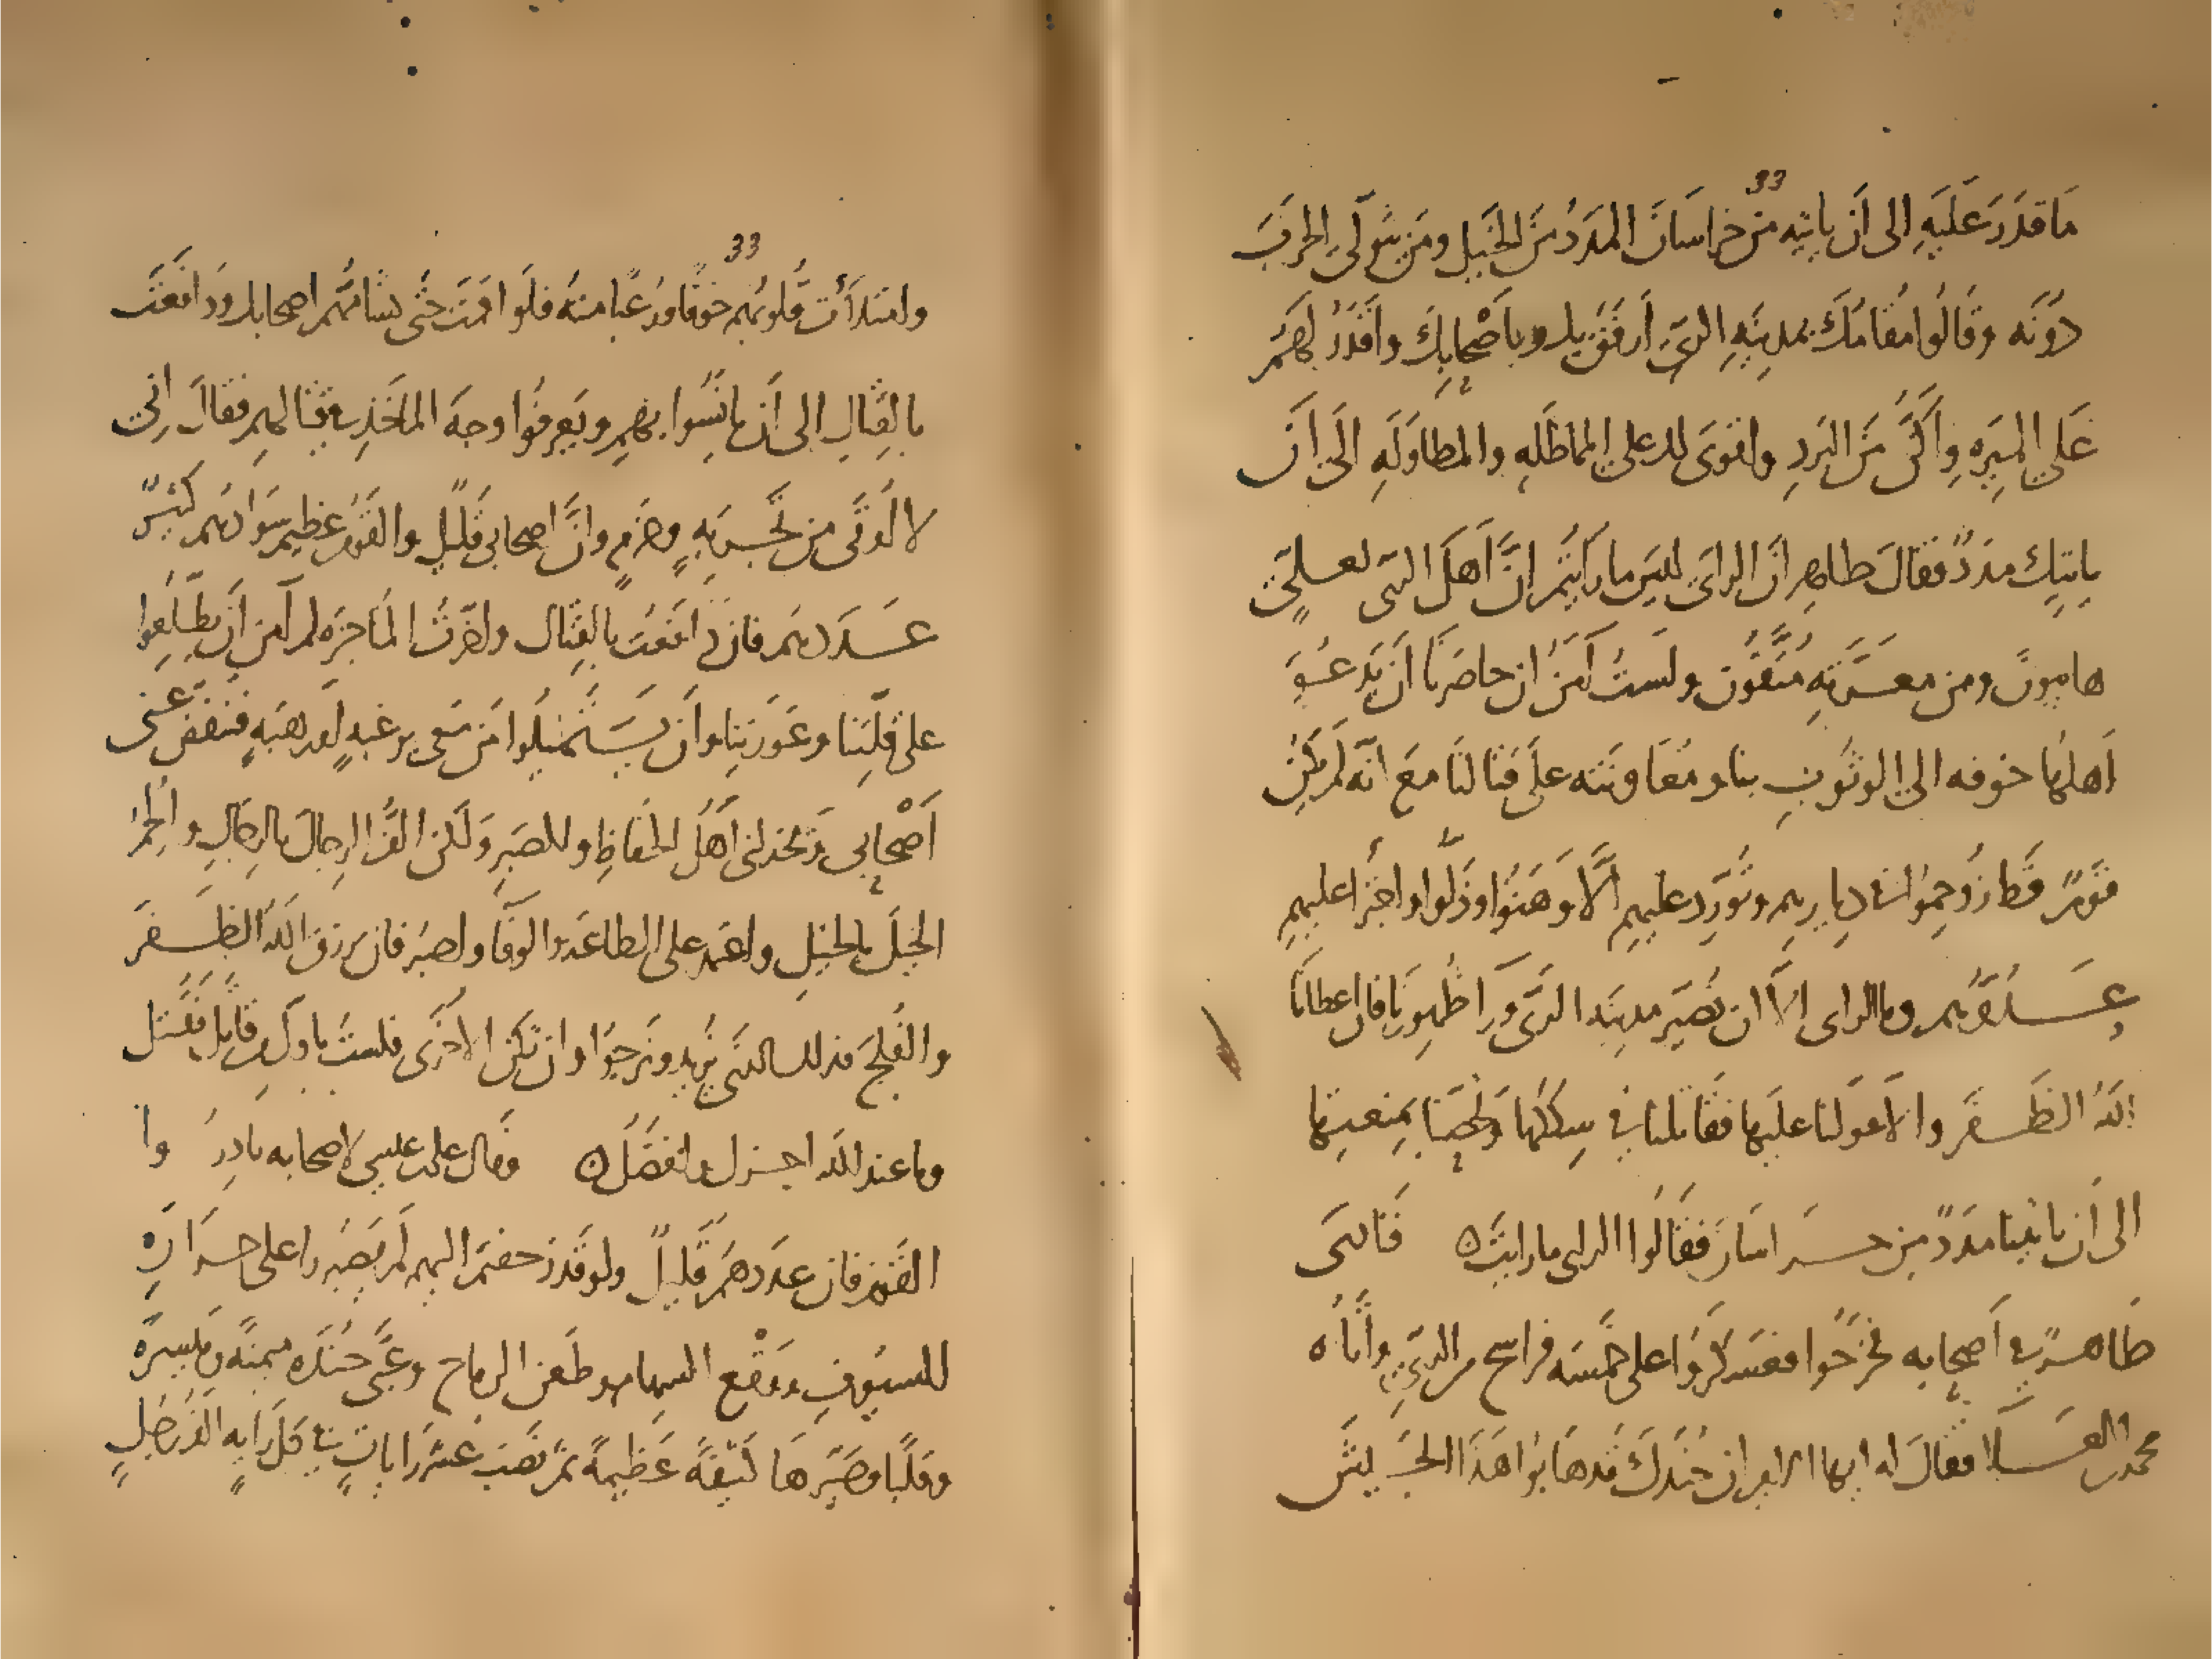 33
ما قدر عليه الى ان ياتيه من خراسان المدد من الخيل ومن يتولى الحرب
دونه وقالوا مقامك بمدينه الرى ارفق بك وباصحابك واقدر لهم
على الميره واكن من البرد واقوى لك على المماطله والمطاوله الى ان
ياتيك مدد فقال طاهر ان الراى ليس ما رايتم ان اهل الرى لعلى
هايبون ومن معرته متقون ولست امن ان حاصرنا ان يدعو
اهلها خوفه الى الوثوب بنا ومعاونته على قتالنا مع انه لم يكن
قوم قط زوحموا فى ديارهم وتورد عليهم الا وهنوا وذلوا واجترا عليهم
عدوهم وما الراى الا ان نصير مدينه الرى ورا ظهورنا فان اعطانا
الله الظفر والا عولنا عليها فقاتلنا فى سككها وتحصنا بمنعتها
الى ان ياتينا مدد من خراسان فقالوا الراى ما رايت ه فنادى
طاهر فى اصحابه فخرجوا فعسكروا على خمسه فراسخ من الرى واتاه
محمد بن العلا فقال له ايها الامير ان جندك قد هابوا هذا الجيش
33
وامتلات قلوبهم خوفا ورعبا منه فلو اقمت حتى يشامهم اصحابك ودافعت
بالقتال الى ان يانسوا بهم ويعرفوا وجه الماخذ فى قتالهم فقال انى
لا اوتى من تجربه وحزم وان اصحابى قليل والقوم عظيم سوادهم كثير
عددهم فان دافعت بالقتال واخرت المناجزه لم امن ان يطلعوا
على قلتنا وعورتنا وان يستميلوا من معى برغبه او رهبه فينفض عنى
اصحابى ويخذلنى اهل الحفاظ والصبر ولكن الف الرجال بالرجال والحم
الخيل بالخيل واعتمد على الطاعه والوفا واصبر فان يرزق الله الظفر
والفلج فذلك الذى نريد ونرجوا وان تكن الاخرى فلست باول من قاتل فقتل
وما عند الله اجزل وافضل ه وقال على بن عيسى لاصحابه بادروا
القوم فان عددهم قليل ولو قد زحفتم اليهم لم يصبروا على حراره
السيوف ووقع السهام وطعن الرماح وعبى جنده ميمنه وميسره
وقلبا وصيرها كثيفة عظيمة ثم نصب عشر رايات فى كل رايه الف رجل